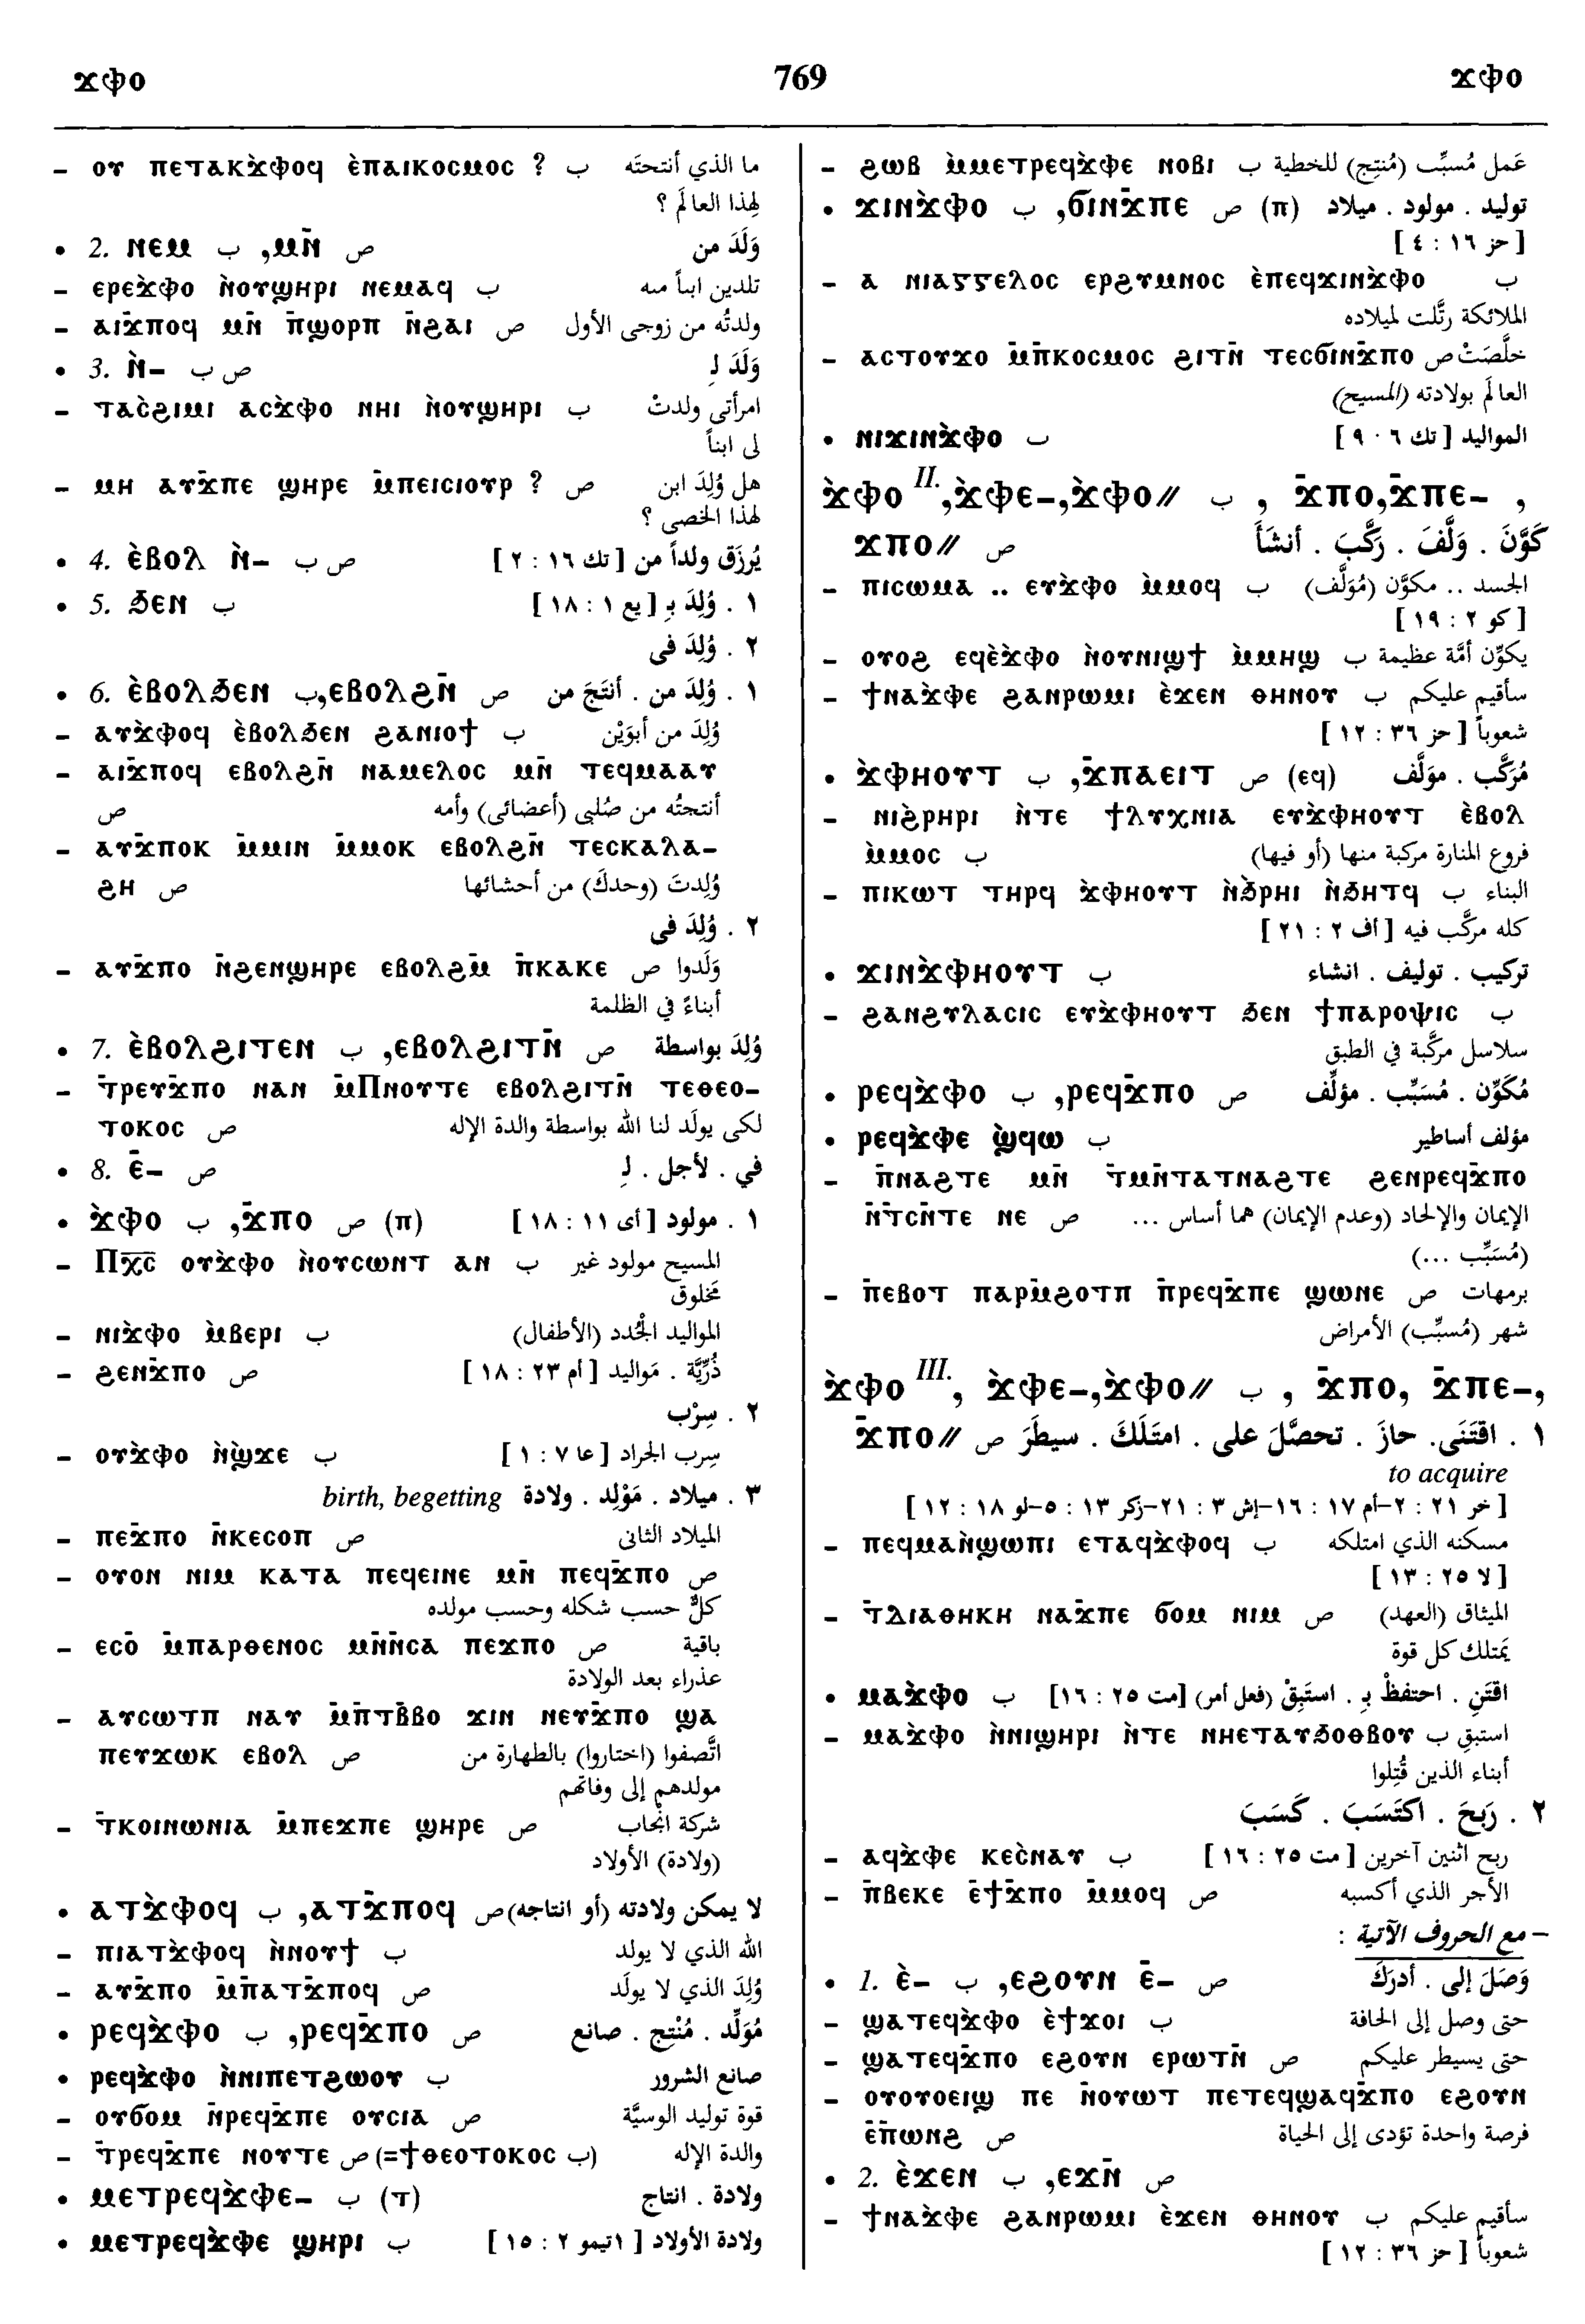 ϫⲫⲟ 769 ϫⲫⲟ
– ⲟⲩ ⲡⲉⲧⲁⲕϫ̀ⲫⲟϥ ⲉ̀ⲡⲁⲓⲕⲟⲥⲙⲟⲥ ? ب ما الذي أنتحتَه
لِهذا العالَم ؟
• 2. ⲛⲉⲙ ب ,ⲙⲛ̄ ص وَلَدَ من
– ⲉⲣⲉϫ̀ⲫⲟ ⲛ̀ⲟⲩϣⲏⲣⲓ ⲛⲉⲙⲁϥ ب تلدين ابناً منه
– ⲁⲓϫ̄ⲡⲟϥ ⲙⲛ̄ ⲡ̄ϣⲟⲣⲡ ⲛ̄ϩⲁⲓ ص ولدتُه من زوجى الأول
• 3. ⲛ̀– ص ب وَلَدَ لـِ
– ⲧⲁⲥ̀ϩⲓⲙⲓ ⲁⲥϫ̀ⲫⲟ ⲛⲏⲓ ⲛ̀ⲟⲩϣⲏⲣⲓ ب امرأتى ولدتْ
لى ابناً
– ⲙⲏ ⲁⲩϫ̄ⲡⲉ ϣⲏⲣⲉ ⲙ̄ⲡⲉⲓⲥⲓⲟⲩⲣ ? ص هل وُلِدَ ابن
لهذا الخصى ؟
• 4. ⲉ̀ⲃⲟⲗ ⲛ̀– ص ب يُرزَق ولداً من [ تك ١٦ : ٢ ]
• 5. ϧⲉⲛ ب ١ . وُلِدَ بـِ [ يع ١ : ١٨ ]
٢ . وُلِدَ فى
• 6. ⲉ̀ⲃⲟⲗϧⲉⲛ ب,ⲉⲃⲟⲗϩⲛ̄ ص ١ . وُلِدَ من . أنتَجَ من
– ⲁⲩϫ̀ⲫⲟϥ ⲉ̀ⲃⲟⲗϧⲉⲛ ϩⲁⲛⲓⲟϯ ب وُلِدَ من أبوَيْن
– ⲁⲓϫ̄ⲡⲟϥ ⲉⲃⲟⲗϩⲛ̄ ⲛⲁⲙⲉⲗⲟⲥ ⲙⲛ̄ ⲧⲉϥⲙⲁⲁⲩ
ص أنتجتُه من صُلبى (أعضائى) وأمه
– ⲁⲩϫ̄ⲡⲟⲕ ⲙ̄ⲙⲓⲛ ⲙ̄ⲙⲟⲕ ⲉⲃⲟⲗϩⲛ̄ ⲧⲉⲥⲕⲁⲗⲁ–
ϩⲏ ص وُلِدتَ (وحدكَ) من أحشائها
٢ . وُلِدَ فى
– ⲁⲩϫ̄ⲡⲟ ⲛ̄ϩⲉⲛϣⲏⲣⲉ ⲉⲃⲟⲗϩⲙ̄ ⲡ̄ⲕⲁⲕⲉ ص وَلَدوا
أبناءً في الظلمة
• 7. ⲉ̀ⲃⲟⲗϩⲓⲧⲉⲛ ب ,ⲉⲃⲟⲗϩⲓⲧⲛ̄ ص وُلِدَ بواسطة
– ⲧ̄ⲣⲉⲩϫ̄ⲡⲟ ⲛⲁⲛ ⲙ̄Ⲡⲛⲟⲩⲧⲉ ⲉⲃⲟⲗϩⲓⲧⲛ̄ ⲧⲉⲑⲉⲟ–
ⲧⲟⲕⲟⲥ ص لكى يولَد لنا الله بواسطة والدة الإله
• 8. ⲉ̄– ص في . لأجل . لـِ
• ϫ̀ⲫⲟ ب ,ϫ̄ⲡⲟ ص (ⲡ) ١ . مولود [ أى ١١ : ١٨ ]
– Ⲡⲭ̅ⲥ̅ ⲟⲩϫ̀ⲫⲟ ⲛ̀ⲟⲩⲥⲱⲛⲧ ⲁⲛ ب المسيح مولود غير
مَخلوق
– ⲛⲓϫ̀ⲫⲟ ⲙ̀ⲃⲉⲣⲓ ب المواليد الجُدد (الأطفال)
– ϩⲉⲛϫ̄ⲡⲟ ص ذُرِّيَّة . مَواليد [ أم ٢٣ : ١٨ ]
٢ . سِرْب
– ⲟⲩϫ̀ⲫⲟ ⲛ̀ϣ̀ϫⲉ ب سِرب الجراد [ عا ٧ : ١ ]
٣ . ميلاد . مَوْلِد . ولادة birth, begetting
– ⲡⲉϫ̄ⲡⲟ ⲛ̄ⲕⲉⲥⲟⲡ ص الميلاد الثانى
– ⲟⲩⲟⲛ ⲛⲓⲙ ⲕⲁⲧⲁ ⲡⲉϥⲉⲓⲛⲉ ⲙⲛ̄ ⲡⲉϥϫ̄ⲡⲟ ص
كلٌّ حسب شكله وحسب مولده
– ⲉⲥⲟ̄ ⲙ̄ⲡⲁⲣⲑⲉⲛⲟⲥ ⲙⲛ̄ⲛ̄ⲥⲁ ⲡⲉϫⲡⲟ ص باقية
عذراء بعد الولادة
– ⲁⲩⲥⲱⲧⲡ ⲛⲁⲩ ⲙ̄ⲡ̄ⲧⲃ̄ⲃⲟ ϫⲓⲛ ⲛⲉⲩϫ̄ⲡⲟ ϣⲁ
ⲡⲉⲩϫⲱⲕ ⲉⲃⲟⲗ ص اتَّصفوا (اختاروا) بالطهارة من
مولدهم إلى وفاتهم
– ⲧ̄ⲕⲟⲓⲛⲱⲛⲓⲁ ⲙ̄ⲡⲉϫⲡⲉ ϣⲏⲣⲉ ص شركة انجاب
(ولادة) الأولاد
• ⲁⲧϫ̀ⲫⲟϥ ب ,ⲁⲧϫ̄ⲡⲟϥ ص لا يمكن ولادته (أو انتاجه)
– ⲡⲓⲁⲧϫ̀ⲫⲟϥ ⲛ̀ⲛⲟⲩϯ ب الله الذي لا يولد
– ⲁⲩϫ̄ⲡⲟ ⲙ̄ⲡ̄ⲁⲧϫ̄ⲡⲟϥ ص وُلِدَ الذي لا يولَد
• ⲣⲉϥϫ̀ⲫⲟ ب ,ⲣⲉϥϫ̄ⲡⲟ ص مُوَلِّد . مُنْتِج . صانع
• ⲣⲉϥϫ̀ⲫⲟ ⲛ̀ⲛⲓⲡⲉⲧϩⲱⲟⲩ ب صانع الشرور
– ⲟⲩϭⲟⲙ ⲛ̄ⲣⲉϥϫ̄ⲡⲉ ⲟⲩⲥⲓⲁ ص قوة توليد الوسيَّة
– ⲧ̄ⲣⲉϥϫ̄ⲡⲉ ⲛⲟⲩⲧⲉ ص (=ϯⲑⲉⲟⲧⲟⲕⲟⲥ ب) والدة الإله
• ⲙⲉⲧⲣⲉϥϫ̀ⲫⲉ– ب (ⲧ) ولادة . انتاج
• ⲙⲉⲧⲣⲉϥϫ̀ⲫⲉ ϣⲏⲣⲓ ب ولادة الأولاد [ ١تيمو ٢ : ١٥ ]
– ϩⲱⲃ ⲙ̀ⲙⲉⲧⲣⲉϥϫ̀ⲫⲉ ⲛⲟⲃⲓ ب عَمل مُسبِّب (مُنتِج) للخطية
• ϫⲓⲛϫ̀ⲫⲟ ب ,ϭⲓⲛϫ̄ⲡⲉ ص (ⲡ) توليد . مولود . ميلاد
[ حز ١٦ : ٤ ]
– ⲁ ⲛⲓⲁⲅⲅⲉⲗⲟⲥ ⲉⲣϩⲩⲙⲛⲟⲥ ⲉ̀ⲡⲉϥϫⲓⲛϫ̀ⲫⲟ ب
الملائكة رتَّلت لميلاده
– ⲁⲥⲧⲟⲩϫⲟ ⲙ̄ⲡ̄ⲕⲟⲥⲙⲟⲥ ϩⲓⲧⲛ̄ ⲧⲉⲥϭⲓⲛϫ̄ⲡⲟ ص خلَّصَتْ
العالَم بولادته (المسيح)
• ⲛⲓϫⲓⲛϫ̀ⲫⲟ ب المواليد [ تك ٦ : ٩ ]
ϫ̀ⲫⲟ II.,ϫ̀ⲫⲉ–,ϫ̀ⲫⲟ// ب , ϫ̄ⲡⲟ,ϫ̄ⲡⲉ– ,
ϫⲡⲟ// ص كَوَّنَ . وَلَّفَ . رَكَّبَ . أنشَأَ
– ⲡⲓⲥⲱⲙⲁ .. ⲉⲩϫ̀ⲫⲟ ⲙ̀ⲙⲟϥ ب الجسد .. مكوَّن (مُؤَلَّف)
[ كو ٢ : ١٩ ]
– ⲟⲩⲟϩ ⲉϥⲉ̀ϫ̀ⲫⲟ ⲛ̀ⲟⲩⲛⲓϣϯ ⲙ̀ⲙⲏϣ ب يكوِّن أمَّة عظيمة
– ϯⲛⲁϫ̀ⲫⲉ ϩⲁⲛⲣⲱⲙⲓ ⲉ̀ϫⲉⲛ ⲑⲏⲛⲟⲩ ب سأقيم عليكم
شعوباً [ حز ٣٦ : ١٢ ]
• ϫ̀ⲫⲏⲟⲩⲧ ب ,ϫ̄ⲡⲁⲉⲓⲧ ص (ⲉϥ) مُرَكَّب . موَلَّف
– ⲛⲓϩ̀ⲣⲏⲣⲓ ⲛ̀ⲧⲉ ϯⲗⲩⲭⲛⲓⲁ ⲉⲩϫ̀ⲫⲏⲟⲩⲧ ⲉ̀ⲃⲟⲗ
ⲙ̀ⲙⲟⲥ ب فروع المنارة مركبة منها (أو فيها)
– ⲡⲓⲕⲱⲧ ⲧⲏⲣϥ ϫ̀ⲫⲏⲟⲩⲧ ⲛ̀ϧ̀ⲣⲏⲓ ⲛ̀ϧⲏⲧϥ ب البناء
كله مركَّب فيه [ أف ٢ : ٢١ ]
• ϫⲓⲛϫ̀ⲫⲏⲟⲩⲧ ب تركيب . توليف . انشاء
– ϩⲁⲛϩⲩⲗⲁⲥⲓⲥ ⲉⲩϫ̀ⲫⲏⲟⲩⲧ ϧⲉⲛ ϯⲡⲁⲣⲟⲯⲓⲥ ب
سلاسل مركَّبة في الطبق
• ⲣⲉϥϫ̀ⲫⲟ ب ,ⲣⲉϥϫ̄ⲡⲟ ص مُكَوِّن . مُسَبِّب . مؤلِّف
• ⲣⲉϥϫ̀ⲫⲉ ϣ̀ϥⲱ ب مؤلف أساطير
– ⲡ̄ⲛⲁϩⲧⲉ ⲙⲛ̄ ⲧ̄ⲙⲛ̄ⲧⲁⲧⲛⲁϩⲧⲉ ϩⲉⲛⲣⲉϥϫ̄ⲡⲟ
ⲛ̄ⲧ̄ⲥⲛ̄ⲧⲉ ⲛⲉ ص الإيمان والإلحاد (وعدم الإيمان) هما أساس ...
(مُسَبِّب ...)
– ⲡ̄ⲉⲃⲟⲧ ⲡⲁⲣⲙ̄ϩⲟⲧⲡ ⲡ̄ⲣⲉϥϫ̄ⲡⲉ ϣⲱⲛⲉ ص برمهات
شهر (مُسبِّب) الأمراض
ϫ̀ⲫⲟ III., ϫ̀ⲫⲉ–,ϫ̀ⲫⲟ// ب , ϫ̄ⲡⲟ, ϫ̄ⲡⲉ–,
ϫ̄ⲡⲟ// ص ١ . اقتَنَى. حازَ . تحصَّلَ على . امتَلَكَ . سيطَرَ
to acquire
[ خر ٢١ : ٢–أم ١٧ : ١٦–إش ٣ : ٢١–زكر ١٣ : ٥–لو ١٨ : ١٢ ]
– ⲡⲉϥⲙⲁⲛ̀ϣⲱⲡⲓ ⲉⲧⲁϥϫ̀ⲫⲟϥ ب مسكنه الذي امتلكه
[ لا ٢٥ : ١٣ ]
– ⲧ̄ⲇⲓⲁⲑⲏⲕⲏ ⲛⲁϫ̄ⲡⲉ ϭⲟⲙ ⲛⲓⲙ ص الميثاق (العهد)
يَمتلك كل قوة
• ⲙⲁϫ̀ⲫⲟ ب اقتَنِ . احتفظْ بـِ . استَبِقْ (فعل أمر) [مت ٢٥ : ١٦]
– ⲙⲁϫ̀ⲫⲟ ⲛ̀ⲛⲓϣⲏⲣⲓ ⲛ̀ⲧⲉ ⲛⲏⲉⲧⲁⲩϧⲟⲑⲃⲟⲩ ب استبقِ
أبناء الذين قُتِلوا
٢ . رَبِحَ . اكتَسَبَ . كَسَبَ
– ⲁϥϫ̀ⲫⲉ ⲕⲉⲥ̀ⲛⲁⲩ ب ربح اثنين آخرين [ مت ٢٥ : ١٦ ]
– ⲡ̄ⲃⲉⲕⲉ ⲉ̄ϯϫ̄ⲡⲟ ⲙ̄ⲙⲟϥ ص الأجر الذي أكسبه
– مع الحروف الآتية :
• 1. ⲉ̀– ب ,ⲉϩⲟⲩⲛ ⲉ̄– ص وَصَلَ إلى . أدرَكَ
– ϣⲁⲧⲉϥϫ̀ⲫⲟ ⲉ̀ϯϫⲟⲓ ب حتى وصل إلى الحافة
– ϣⲁⲧⲉϥϫ̄ⲡⲟ ⲉϩⲟⲩⲛ ⲉⲣⲱⲧⲛ̄ ص حتى يسيطر عليكم
– ⲟⲩⲟⲩⲟⲉⲓϣ ⲡⲉ ⲛ̄ⲟⲩⲱⲧ ⲡⲉⲧⲉϥϣⲁϥϫ̄ⲡⲟ ⲉϩⲟⲩⲛ
ⲉ̄ⲡ̄ⲱⲛϩ ص فرصة واحدة تؤدى إلى الحياة
• 2. ⲉ̀ϫⲉⲛ ب ,ⲉϫⲛ̄ ص
– ϯⲛⲁϫ̀ⲫⲉ ϩⲁⲛⲣⲱⲙⲓ ⲉ̀ϫⲉⲛ ⲑⲏⲛⲟⲩ ب سأقيم عليكم
شعوباً [ حز ٣٦ : ١٢ ]